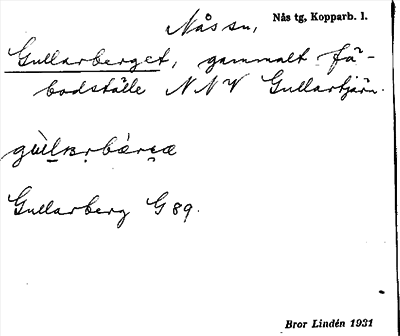 Nås sn, Nås tg, Kopparb. l.
Gullarberget, gammalt fä-
bodställe NNV Gullartjärn.
Gullarberg G 89.
Bror Lindén 1931